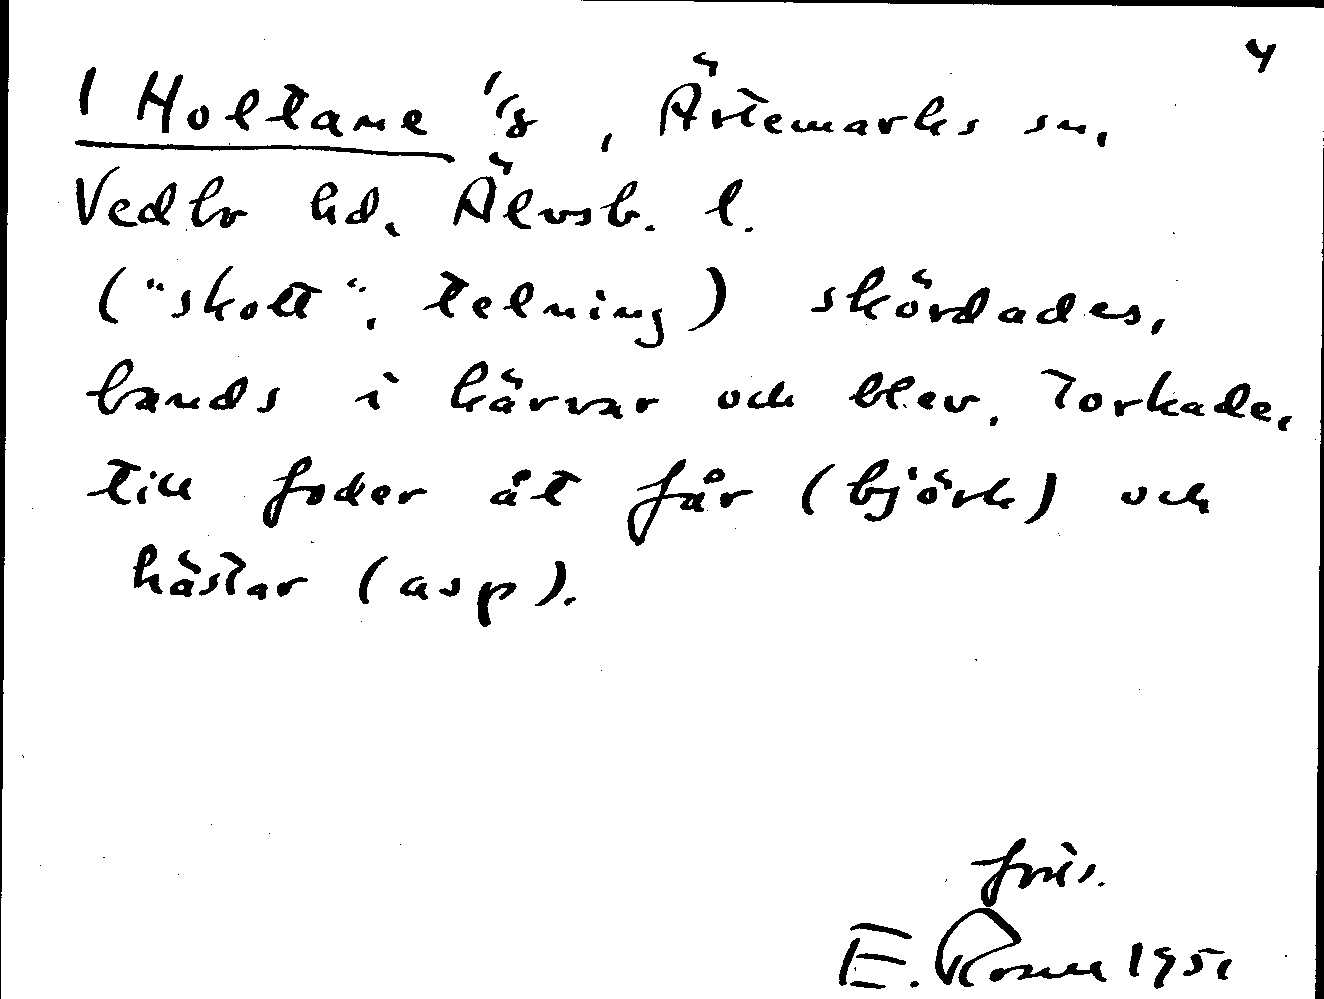 4
1 Holtane 1/8, Ärtemarks sn,
Vedbo hd. Älvsb. l.
("skott", telning) skördades,
bands i kärvar och blev. torkade,
till foder åt får (björk) och
hästar (asp).
E. 1951